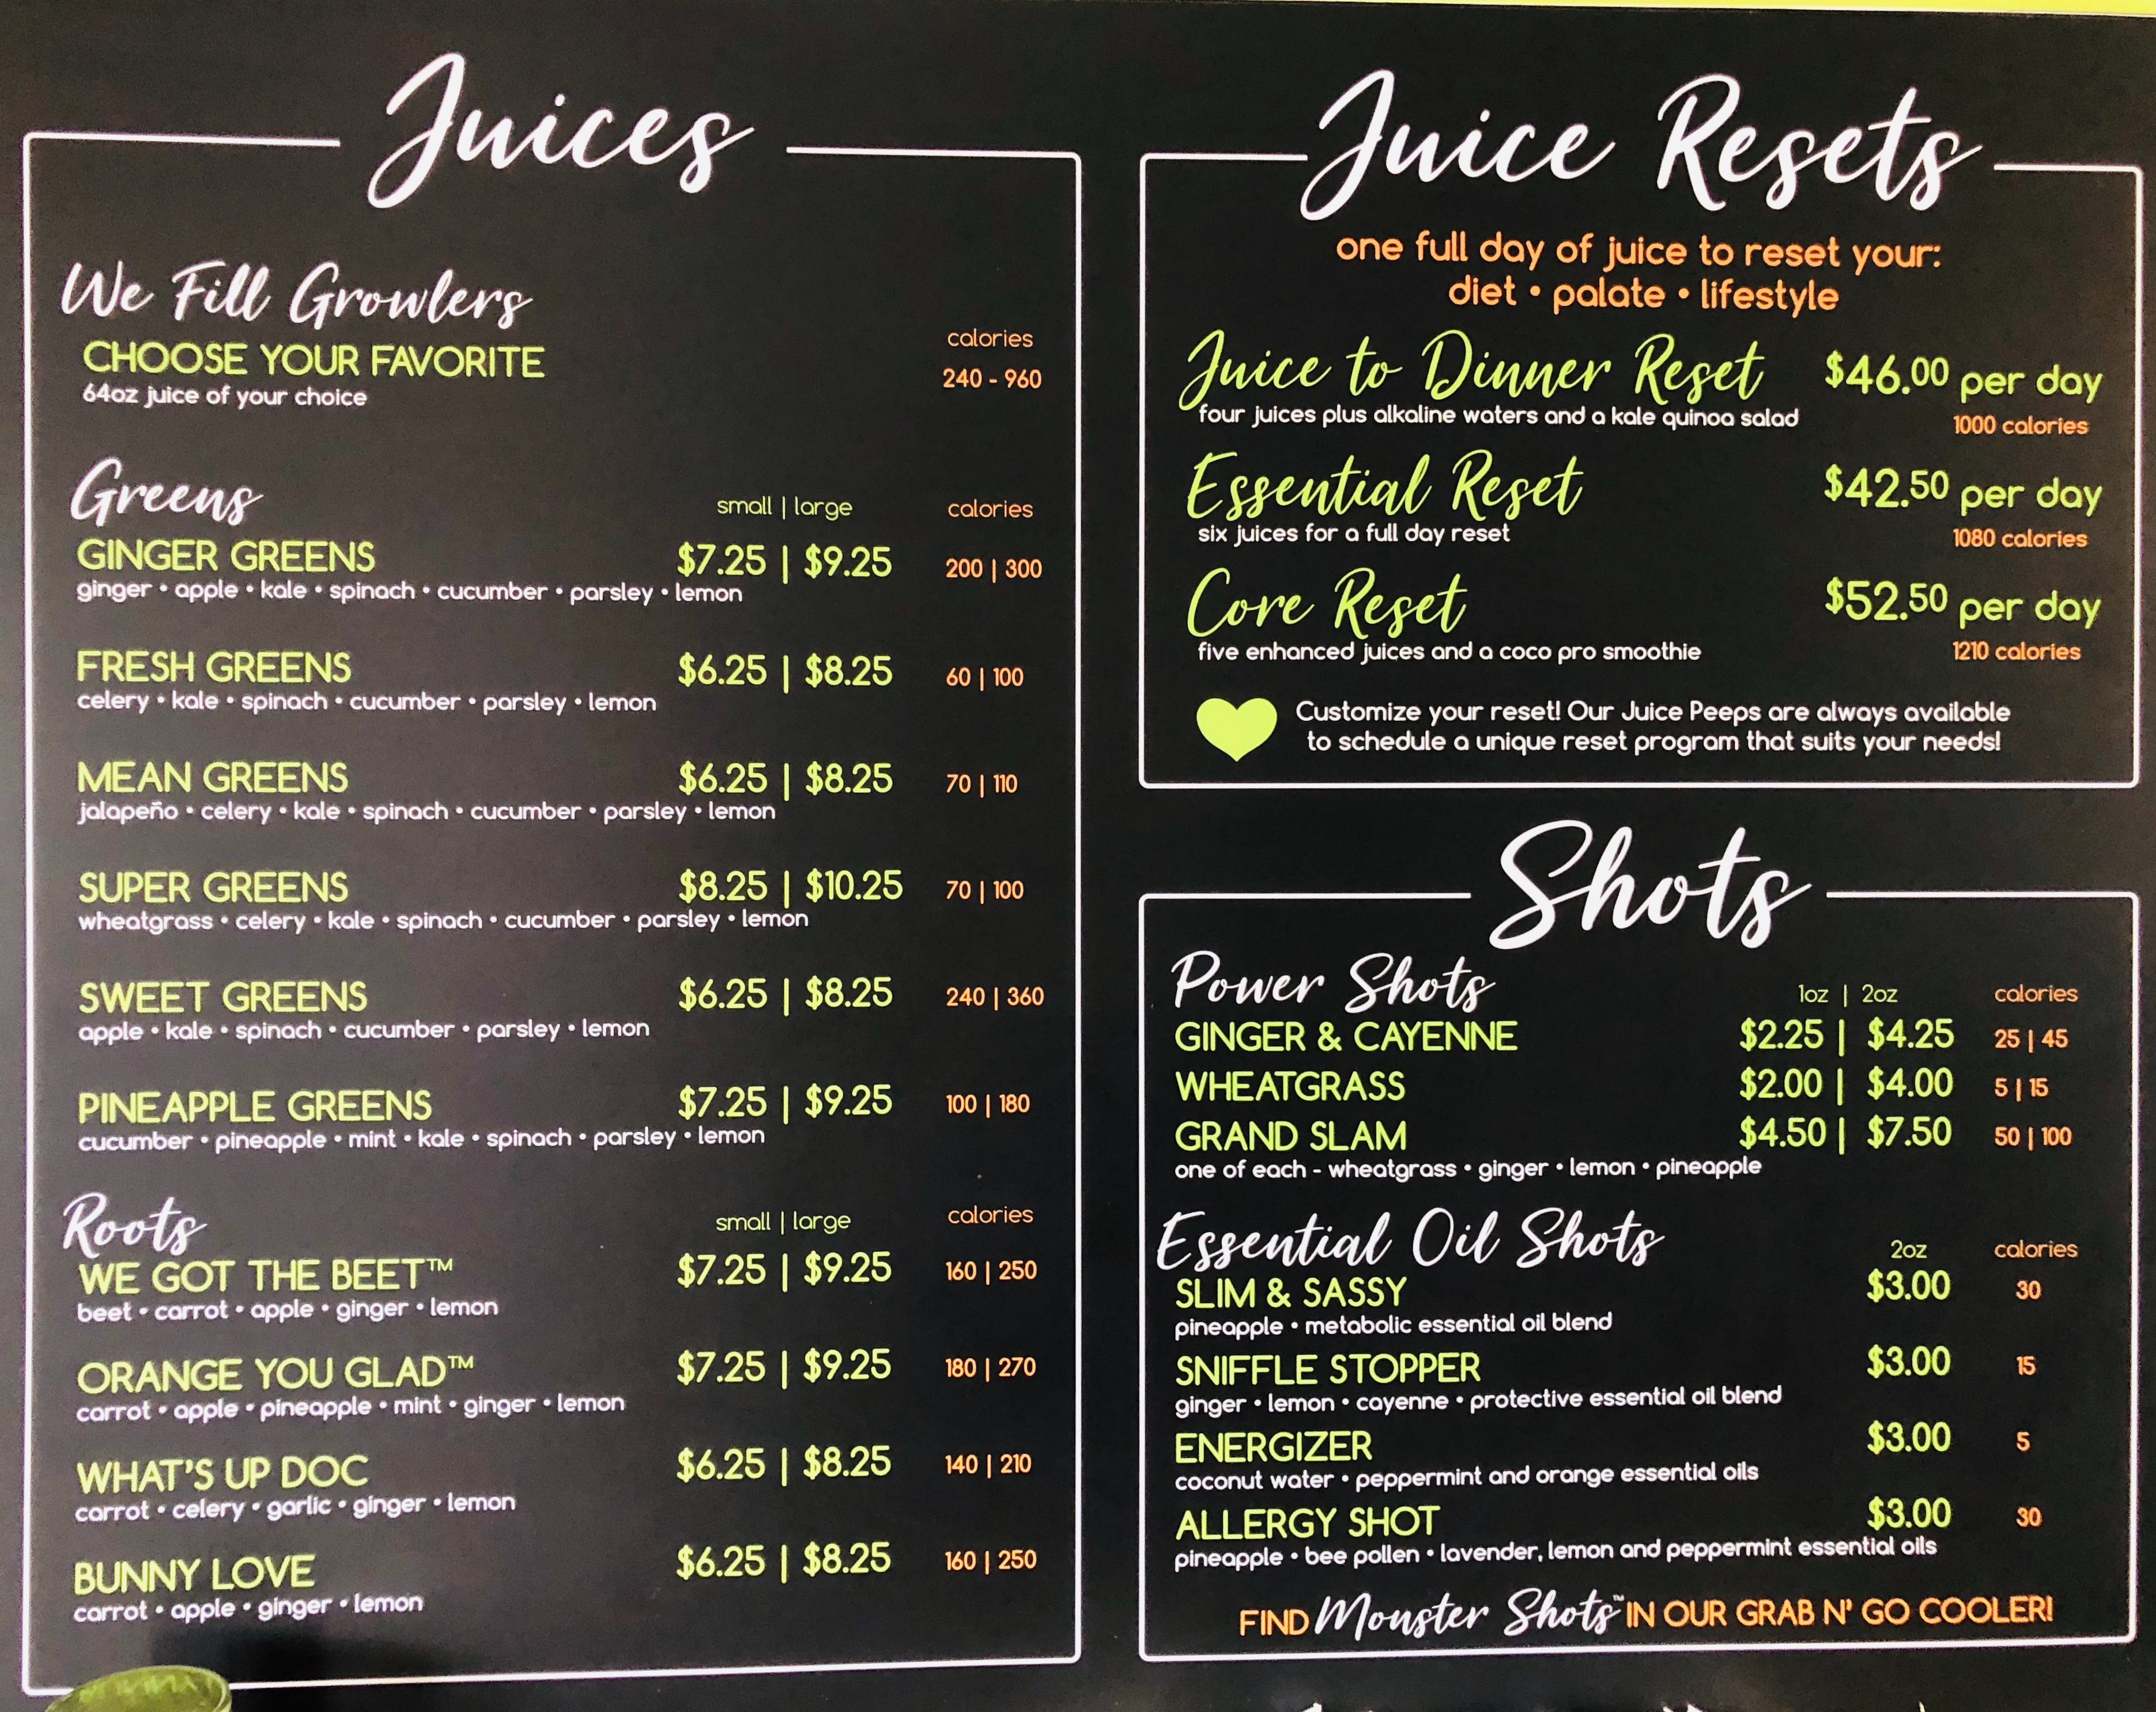 Juices
We Fill Growlers
calories
CHOOSE YOUR FAVORITE 240 - 960
64oz juice of your choice
Greens small | large calories
GINGER GREENS $7.25 | $9.25 200 | 300
ginger • apple • kale • spinach • cucumber • parsley • lemon
FRESH GREENS $6.25 | $8.25 60 | 100
celery • kale • spinach • cucumber • parsley • lemon
MEAN GREENS $6.25 | $8.25 70 | 110
jalapeño • celery • kale • spinach • cucumber • parsley • lemon
SUPER GREENS $8.25 | $10.25 70 | 100
wheatgrass • celery • kale • spinach • cucumber • parsley • lemon
SWEET GREENS $6.25 | $8.25 240 | 360
apple • kale • spinach • cucumber • parsley • lemon
PINEAPPLE GREENS $7.25 | $9.25 100 | 180
cucumber • pineapple • mint • kale • spinach • parsley • lemon
Roots small | large calories
WE GOT THE BEET™ $7.25 | $9.25 160 | 250
beet • carrot • apple • ginger • lemon
ORANGE YOU GLAD™ $7.25 | $9.25 180 | 270
carrot • apple • pineapple • mint • ginger • lemon
WHAT'S UP DOC $6.25 | $8.25 140 | 210
carrot • celery • garlic • ginger • lemon
BUNNY LOVE $6.25 | $8.25 160 | 250
carrot • apple • ginger • lemon
Juice Resets
one full day of juice to reset your:
diet • palate • lifestyle
Juice to Dinner Reset $46.00 per day
four juices plus alkaline waters and a kale quinoa salad
1000 calories
Essential Reset $42.50 per day
six juices for a full day reset 1080 calories
Core Reset $52.50 per day
five enhanced juices and a coco pro smoothie 1210 calories
Customize your reset! Our Juice Peeps are always available
to schedule a unique reset program that suits your needs!
Shots
Power Shots 1oz | 2oz calories
GINGER & CAYENNE $2.25 | $4.25 25 | 45
WHEATGRASS $2.00 | $4.00 5 | 15
GRAND SLAM $4.50 | $7.50 50 | 100
one of each - wheatgrass • ginger • lemon • pineapple
Essential Oil Shots 2oz calories
SLIM & SASSY $3.00 30
pineapple • metabolic essential oil blend
SNIFFLE STOPPER $3.00 15
ginger • lemon • cayenne • protective essential oil blend
ENERGIZER $3.00 5
coconut water • peppermint and orange essential oils
ALLERGY SHOT $3.00 30
pineapple • bee pollen • lavender, lemon and peppermint essential oils
FIND Monster Shots™ IN OUR GRAB N' GO COOLER!